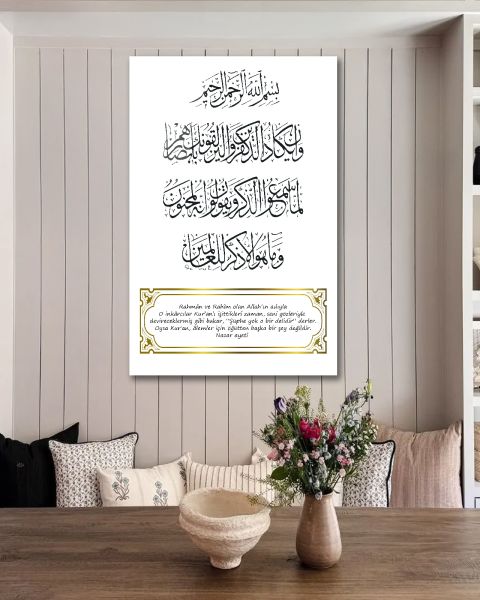 بسم الله الرحمن الرحيم
وان يكاد الذين كفروا ليزلقونك بابصارهم
لما سمعوا الذكر ويقولون انه لمجنون
وما هو الا ذكر للعالمين
Rahmân ve Rahîm olan Allah'ın adıyla
O inkârcılar Kur'an'ı işittikleri zaman, seni gözleriyle
devireceklermiş gibi bakar, "Şüphe yok o bir delidir" derler.
Oysa Kur'an, âlemler için öğütten başka bir şey değildir.
Nazar ayeti